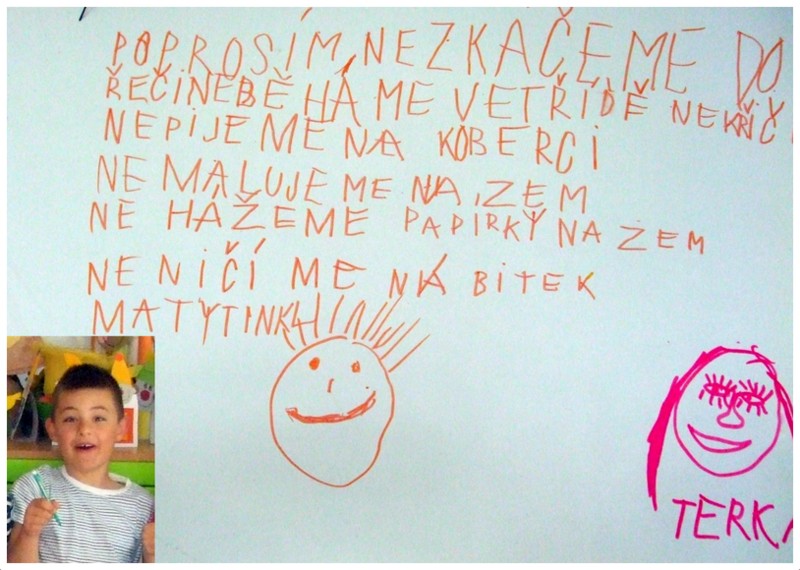 POPROSÍM, NEZKAČEME DO
ŘEČINEBĚHÁME VETŘÍDĚ NEKŘIČ
NEPIJEME NA KOBERCI
NEMALUJEME NA ZEM
NE HÁŽEME PAPIRKY NA ZEM
NENIČÍ ME NÁ BITEK
MATYTINK
TERKA